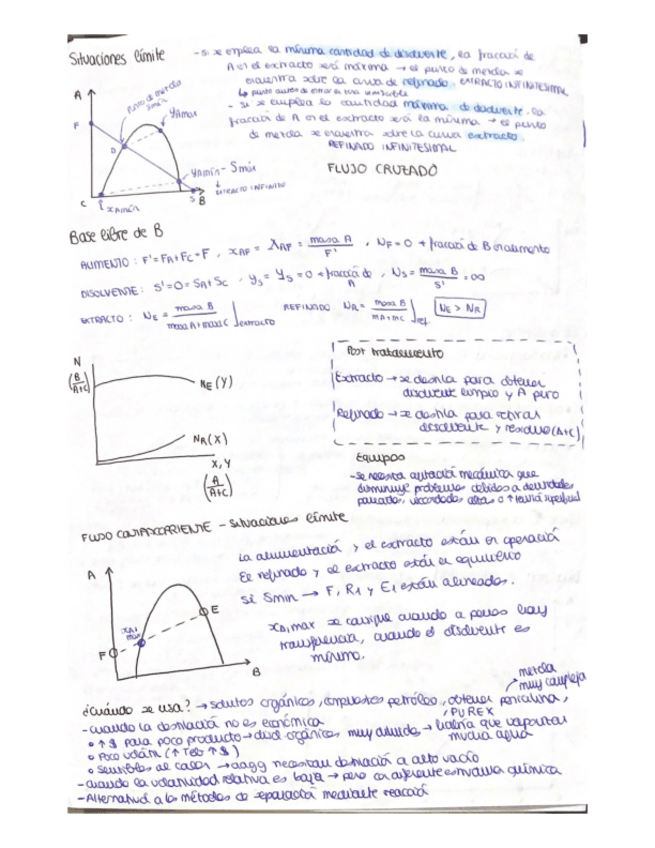 Situaciones límite
- si se emplea la mínima cantidad de disolvente, la fracción de
A en el extracto será máxima → el punto de mezcla se
encuentra sobre la curva de refinado. EXTRACTO INFINITESIMAL
↳ punto antes de entrar en zona inmiscible
- Si se emplea la cantidad máxima de disolvente, la
fracción de A en el extracto será la mínima → el punto
de mezcla se encuentra sobre la curva extracto.
REFINADO INFINITESIMAL
A
punto de mezcla
Smín
yAmax
F
D
yAmín - Smáx
↓
EXTRACTO INFINITO
C
xAmín
S
B
FLUJO CRUZADO
Base libre de B
ALIMENTO: F' = FA + FC = F, XAF = XAF = masa A / F', NF = 0 → fracción de B en alimento
DISOLVENTE: S' = 0 = SA + SC, YS = yS = 0 → fracción de A, NS = masa B / S' = ∞
EXTRACTO: NE = masa B / masa A + masa C | extracto REFINADO NR = masa B / mA + mC | ref. NE > NR
N
(B / A+C)
NE (Y)
NR (X)
X, Y
(A / A+C)
Post tratamiento
Extracto → se destila para obtener
disolvente limpio y A puro
Refinado → se destila para retirar
disolvente y residuo (A+C)
Equipos
- Se necesita agitación mecánica que
disminuye problemas debidos a densidades
parecidas, viscosidades altas o ↑ tensión superficial
FLUJO CONTRACORRIENTE - Situaciones límite
La alimentación y el extracto están en operación
El refinado y el extracto están en equilibrio
Si Smín → F, R1 y E1 están alineados.
A
E
F
B
máx se consigue cuando a penas hay
transferencia, cuando el disolvente es
mínimo.
mezcla
muy compleja
¿Cuándo se usa? → solutos orgánicos, compuestos petróleo, obtener penicilina,
PUREX
- cuando la destilación no es económica
• ↑ $ para poco producto → disol. orgánicos muy diluidos → habría que vaporizar
mucha agua
• Poco volátil (↑ Teb ↑ $)
• Sensibles al calor → aagg necesitan destilación a alto vacío
- cuando la volatilidad relativa es baja → pero con diferente estructura química
- Alternativa a los métodos de separación mediante reacción